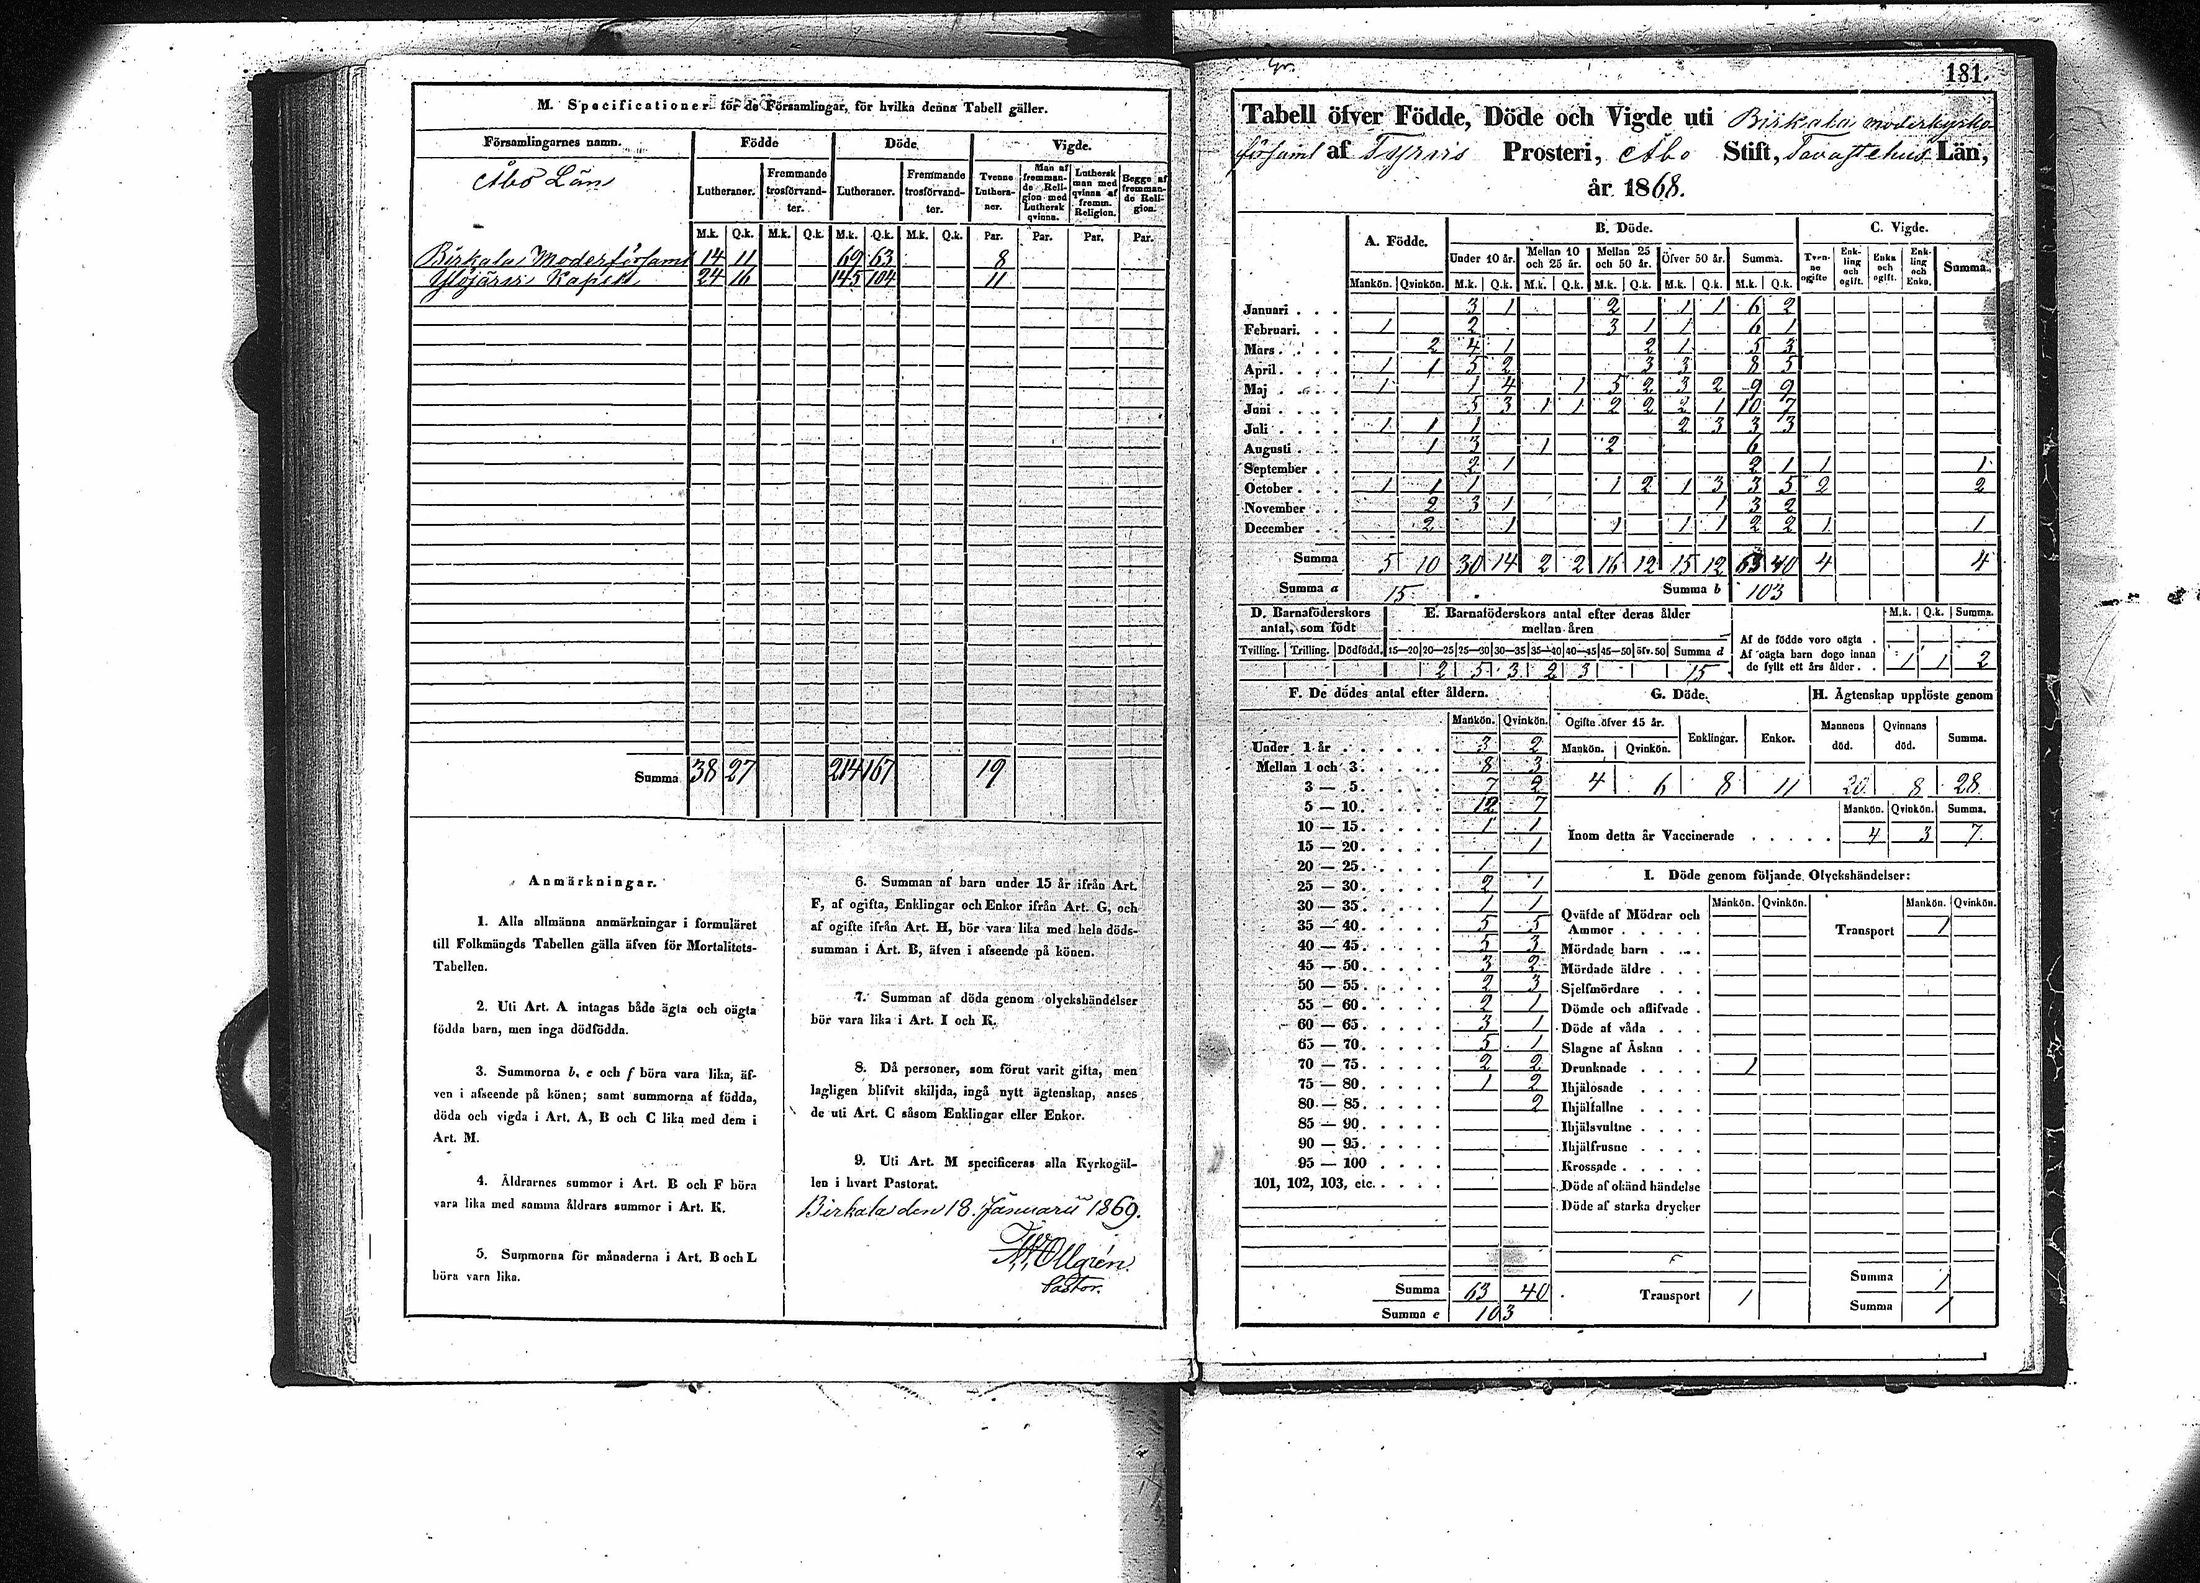 M. Specificationer för de Församlingar, för hvilka denna Tabell gäller.
Församlingarnes namn. Födde Döde. Vigde.
Åbo Län
Lutheraner. Fremmande trosförvandter. Lutheraner. Fremmande trosförvandter. Tvenne Lutheraner. Man af fremmande Religion med Luthersk qvinna. Luthersk man med qvinna af fremm. Religion. Begge af fremmande Religion.
M.k. Q.k. M.k. Q.k. M.k. Q.k. M.k. Q.k. Par. Par. Par. Par.
Birkala Moderförsaml 14 11 69 63 8
Ylöjärvi Kapell 24 16 145 104 11
Summa 38 27 214 167 19
Anmärkningar.
1. Alla allmänna anmärkningar i formuläret
till Folkmängds Tabellen gälla äfven för Mortalitets-
Tabellen.
2. Uti Art. A intagas både ägta och oägta
födda barn, men inga dödfödda.
3. Summorna b, e och f böra vara lika, äf-
ven i afseende på könen; samt summorna af födda,
döda och vigda i Art. A, B och C lika med dem i
Art. M.
4. Åldrarnes summor i Art. B och F böra
vara lika med samma åldrars summor i Art. K.
5. Summorna för månaderna i Art. B och L
böra vara lika.
6. Summan af barn under 15 år ifrån Art.
F, af ogifta, Enklingar och Enkor ifrån Art. G, och
af ogifte ifrån Art. H, bör vara lika med hela döds-
summan i Art. B, äfven i afseende på könen.
7. Summan af döda genom olyckshändelser
bör vara lika i Art. I och K.
8. Då personer, som förut varit gifta, men
lagligen blifvit skiljda, ingå nytt ägtenskap, anses
de uti Art. C såsom Enklingar eller Enkor.
9. Uti Art. M specificeras alla Kyrkogäl-
len i hvart Pastorat.
Birkala den 18. Januarii 1869.
Pastor.
181.
Tabell öfver Födde, Döde och Vigde uti Birkala moderkyrko
församl af Tyrvis Prosteri, Åbo Stift, Tavastehus Län,
år 1868.
A. Födde. B. Döde. C. Vigde.
Under 10 år. Mellan 10 och 25 år. Mellan 25 och 50 år. Öfver 50 år. Summa. Tvenne ogifte Enkling och ogift. Enka och ogift. Enkling och Enka. Summa.
Mankön. Qvinkön. M.k. Q.k. M.k. Q.k. M.k. Q.k. M.k. Q.k. M.k. Q.k.
Januari 3 1 2 1 1 6 2
Februari 1 2 3 1 1 6 1
Mars 2 4 1 2 1 5 3
April 1 1 5 2 3 3 8 5
Maj 1 1 4 1 5 2 3 2 9 9
Juni 5 3 1 1 2 2 2 1 10 7
Juli 1 1 1 2 3 3 3
Augusti 1 3 1 2 6
September 2 1 2 1 1 1
October 1 1 1 1 2 1 3 3 5 2 2
November 2 3 1 1 3 2
December 2 1 1 1 1 2 2 1 1
Summa 5 10 30 14 2 2 16 12 15 12 63 40 4 4
Summa a 15 Summa b 103
D. Barnaföderskors antal, som födt
Tvilling. Trilling. Dödfödd.
E. Barnaföderskors antal efter deras ålder mellan åren
15—20 20—25 25—30 30—35 35—40 40—45 45—50 öfv. 50 Summa d
2 5 3 2 3 15
M.k. Q.k. Summa.
Af de födde voro oägta
Af oägta barn dogo innan
de fyllt ett års ålder 1 1 2
F. De dödes antal efter åldern.
Mankön. Qvinkön.
Under 1 år 3 2
Mellan 1 och 3 8 3
3 — 5 7 2
5 — 10 12 7
10 — 15 1 1
15 — 20 1
20 — 25 1
25 — 30 2 1
30 — 35 1 1
35 — 40 5 5
40 — 45 5 3
45 — 50 3 2
50 — 55 2 3
55 — 60 2 1
60 — 65 3 1
65 — 70 5 1
70 — 75 2 2
75 — 80 1 2
80 — 85 2
85 — 90
90 — 95
95 — 100
101, 102, 103, etc.
Summa 63 40
Summa e 103
G. Döde.
Ogifte öfver 15 år. Enklingar. Enkor.
Mankön. Qvinkön.
4 6 8 11
H. Ägtenskap upplöste genom
Mannens död. Qvinnans död. Summa.
20 8 28
Mankön. Qvinkön. Summa.
Inom detta år Vaccinerade 4 3 7
I. Döde genom följande Olyckshändelser:
Mankön. Qvinkön. Mankön. Qvinkön.
Qväfde af Mödrar och
Ammor Transport 1
Mördade barn
Mördade äldre
Sjelfmördare
Dömde och aflifvade
Döde af våda
Slagne af Åskan
Drunknade 1
Ihjälosade
Ihjälfallne
Ihjälsvultne
Ihjälfrusne
Krossade
Döde af okänd händelse
Döde af starka drycker
Summa 1
Transport 1 Summa 1